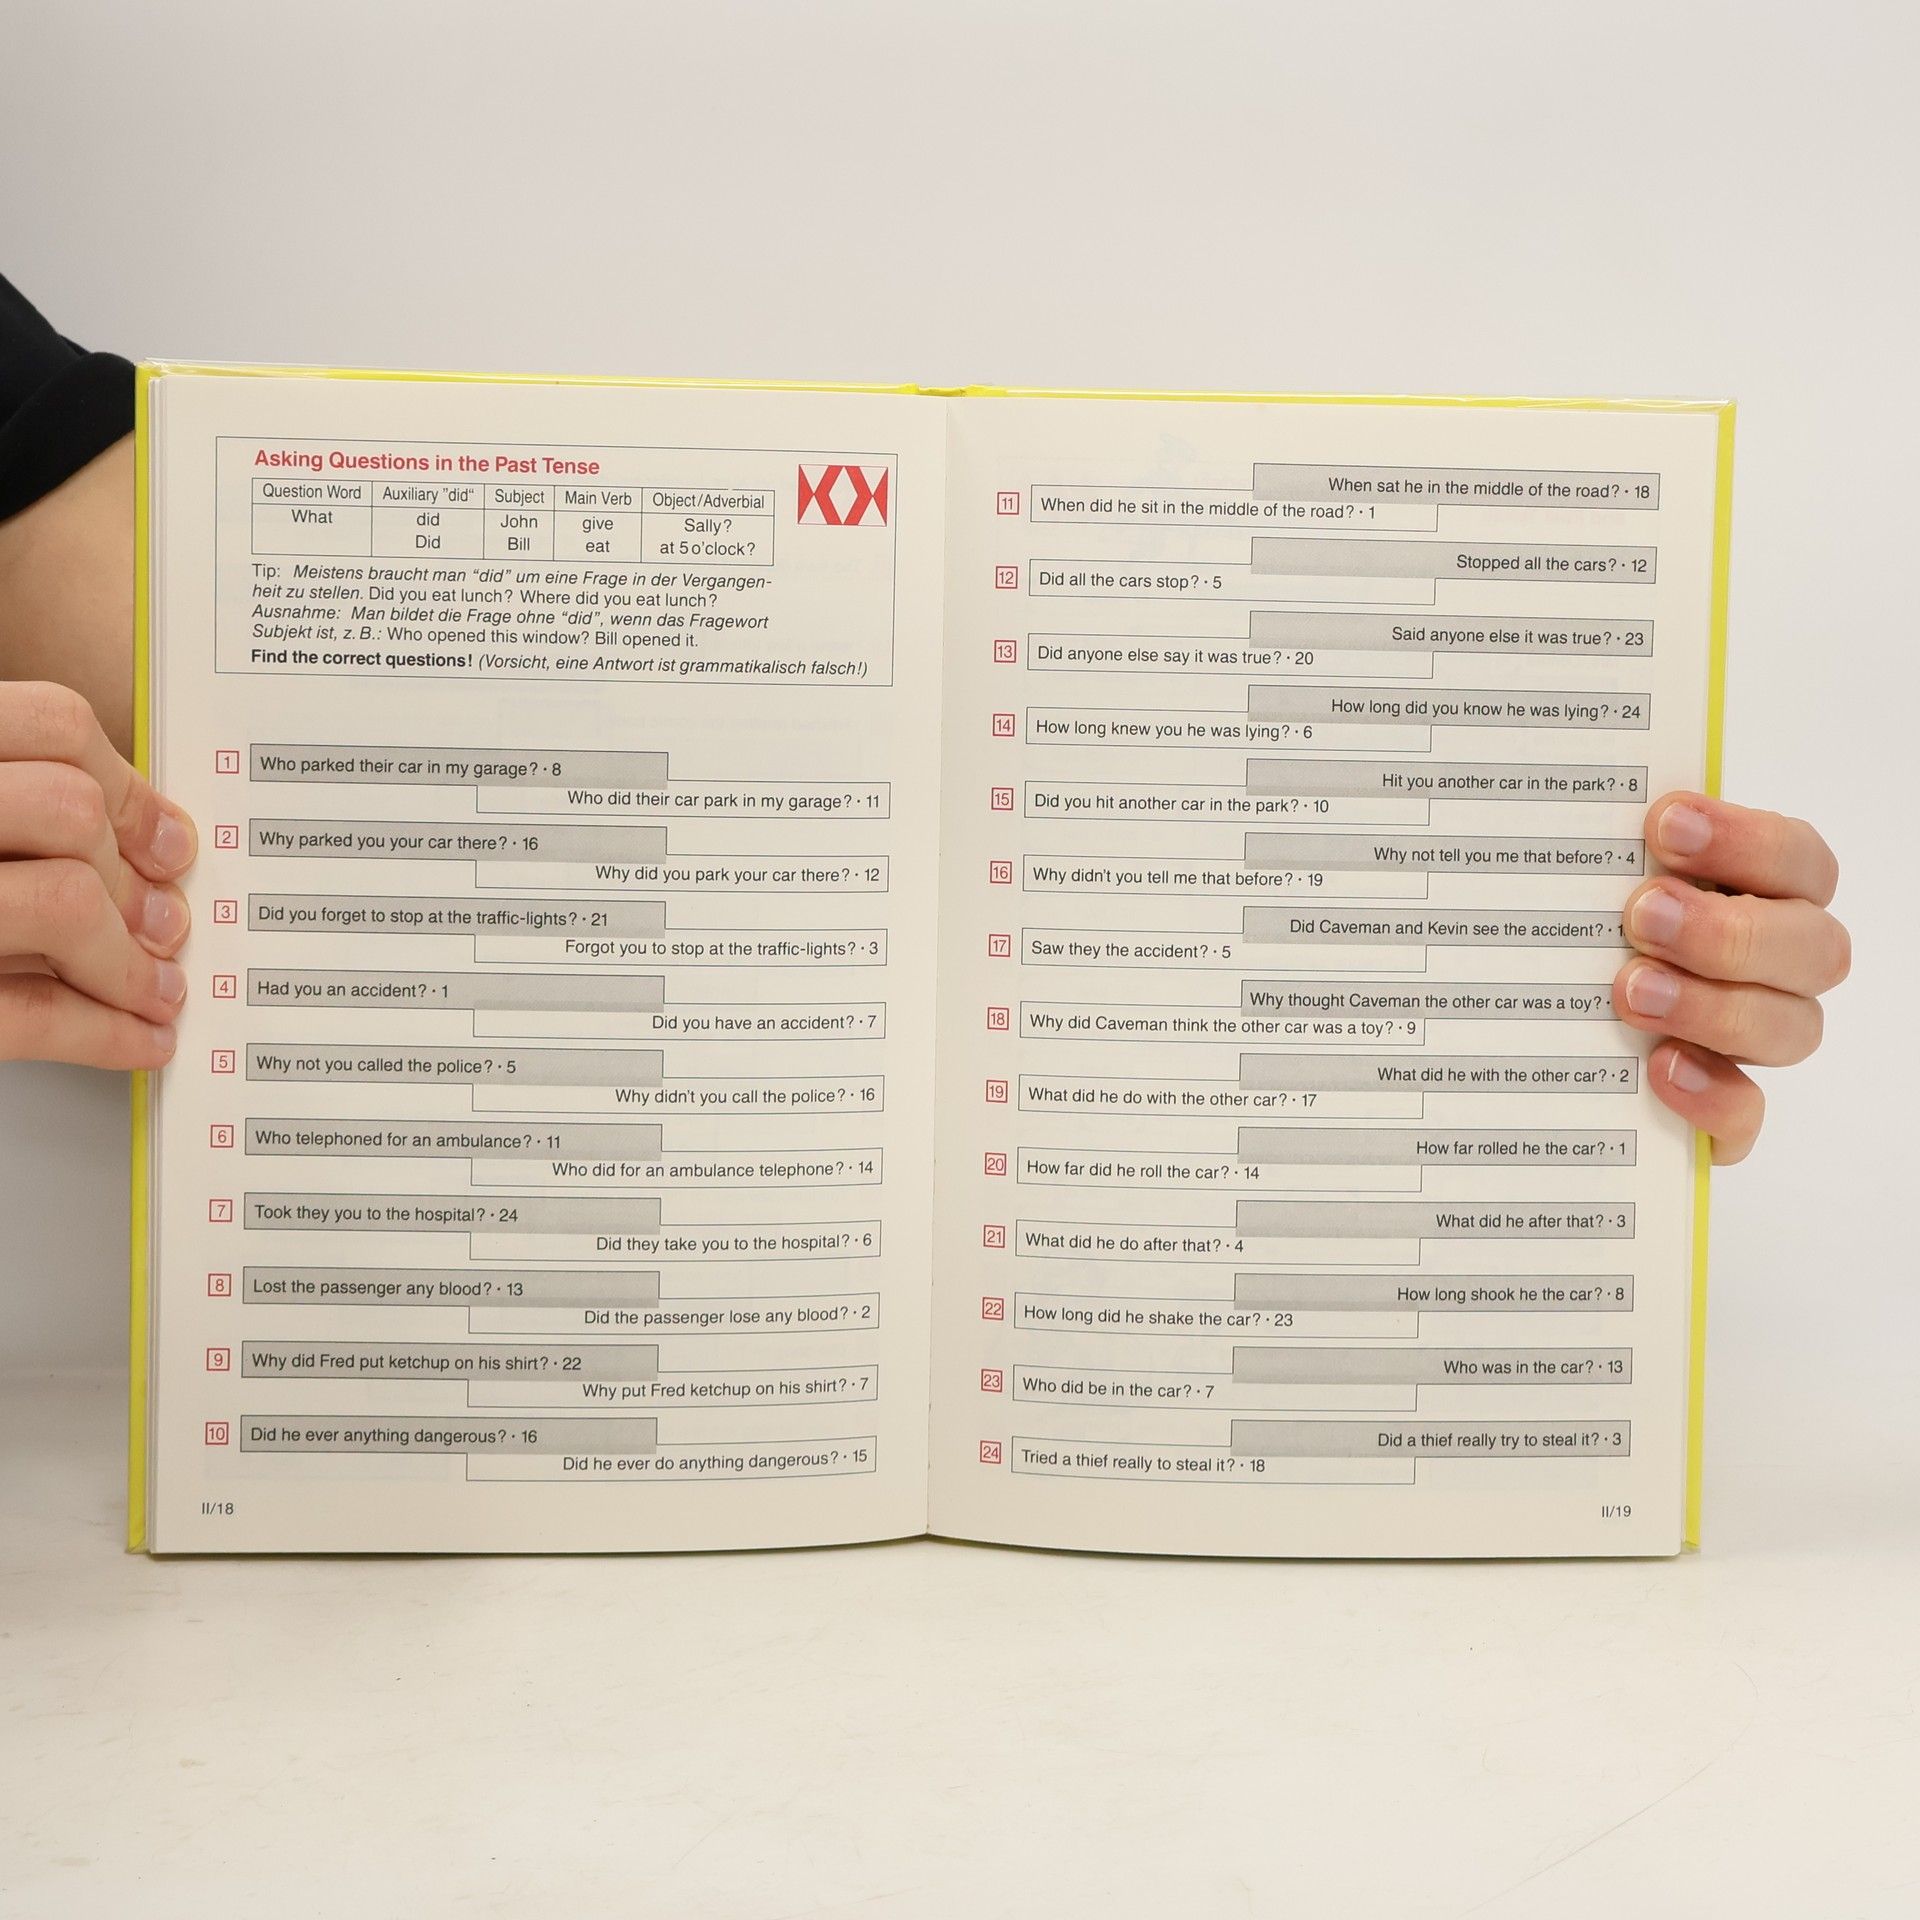 Asking Questions in the Past Tense
Question Word Auxiliary "did" Subject Main Verb Object/Adverbial
What did John give Sally?
Did Bill eat at 5 o'clock?
Tip: Meistens braucht man "did" um eine Frage in der Vergangen-
heit zu stellen. Did you eat lunch? Where did you eat lunch?
Ausnahme: Man bildet die Frage ohne "did", wenn das Fragewort
Subjekt ist, z. B.: Who opened this window? Bill opened it.
Find the correct questions! (Vorsicht, eine Antwort ist grammatikalisch falsch!)
1 Who parked their car in my garage? · 8
Who did their car park in my garage? · 11
2 Why parked you your car there? · 16
Why did you park your car there? · 12
3 Did you forget to stop at the traffic-lights? · 21
Forgot you to stop at the traffic-lights? · 3
4 Had you an accident? · 1
Did you have an accident? · 7
5 Why not you called the police? · 5
Why didn't you call the police? · 16
6 Who telephoned for an ambulance? · 11
Who did for an ambulance telephone? · 14
7 Took they you to the hospital? · 24
Did they take you to the hospital? · 6
8 Lost the passenger any blood? · 13
Did the passenger lose any blood? · 2
9 Why did Fred put ketchup on his shirt? · 22
Why put Fred ketchup on his shirt? · 7
10 Did he ever anything dangerous? · 16
Did he ever do anything dangerous? · 15
II/18
When sat he in the middle of the road? · 18
11 When did he sit in the middle of the road? · 1
Stopped all the cars? · 12
12 Did all the cars stop? · 5
Said anyone else it was true? · 23
13 Did anyone else say it was true? · 20
How long did you know he was lying? · 24
14 How long knew you he was lying? · 6
Hit you another car in the park? · 8
15 Did you hit another car in the park? · 10
Why not tell you me that before? · 4
16 Why didn't you tell me that before? · 19
Did Caveman and Kevin see the accident? ·
17 Saw they the accident? · 5
Why thought Caveman the other car was a toy? ·
18 Why did Caveman think the other car was a toy? · 9
What did he with the other car? · 2
19 What did he do with the other car? · 17
How far rolled he the car? · 1
20 How far did he roll the car? · 14
What did he after that? · 3
21 What did he do after that? · 4
How long shook he the car? · 8
22 How long did he shake the car? · 23
Who was in the car? · 13
23 Who did be in the car? · 7
Did a thief really try to steal it? · 3
24 Tried a thief really to steal it? · 18
II/19